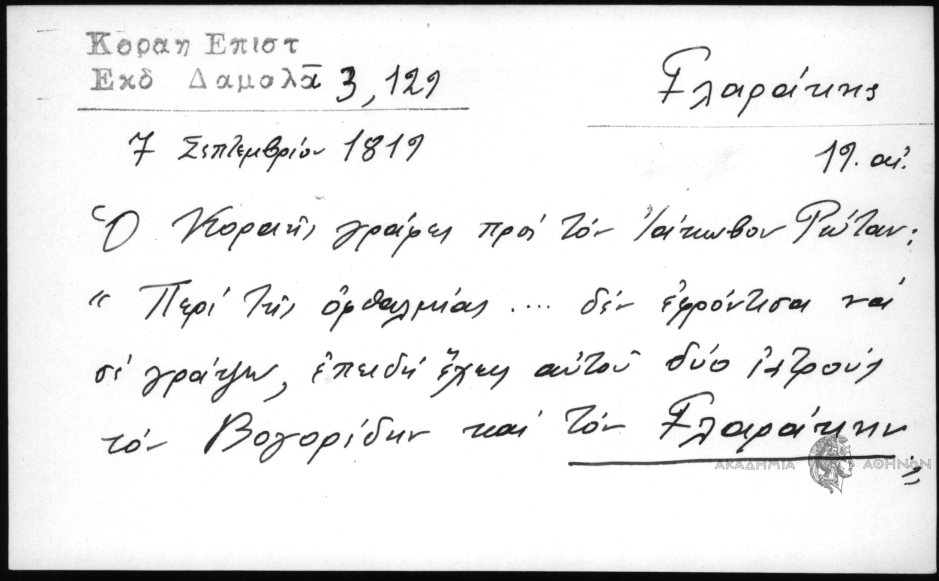 Κοραη Επιστ
Εκδ Δαμαλᾶ 3, 129
Γλαράκης
7 Σεπτεμβρίου 1819
19. αἰ.
Ὁ Κοραῆς γράφει πρός τόν Ἰάκωβον Ρώταν:
“ Περί τῆς ὀφθαλμίας .... δέν ἐφρόντισα νά
σέ γράψω, ἐπειδή ἔχεις αὐτοῦ δύο ἰατρούς
τόν Βογορίδην καί τόν Γλαράκην.„
ΑΚΑΔΗΜΙΑ ΑΘΗΝΩΝ